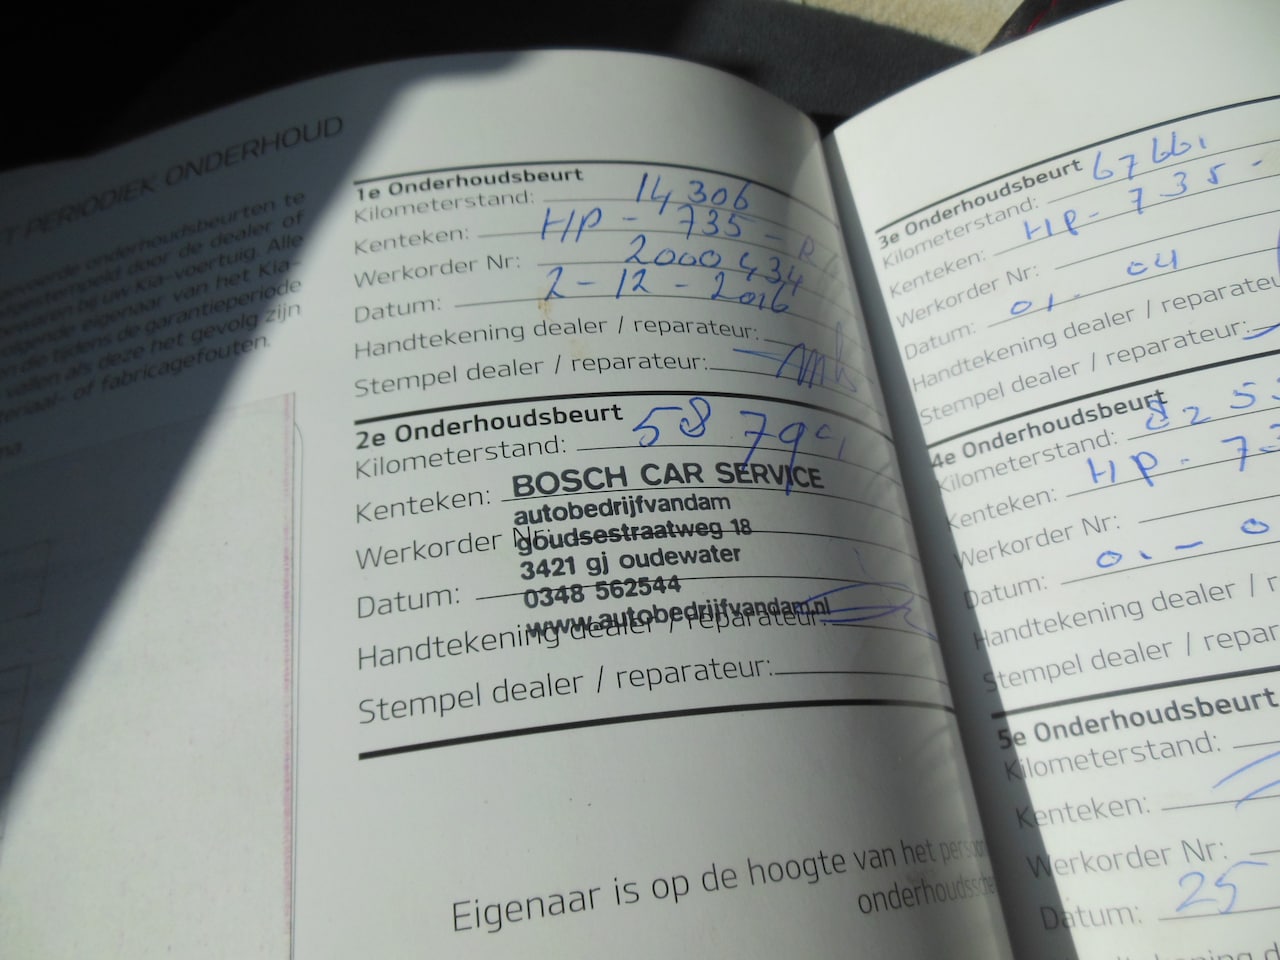 T PERIODIEK ONDERHOUD
voorde onderhoudsbeurten te
afgestempeld door de dealer of
bewaren bij uw Kia-voertuig. Alle
volgende eigenaar van het Kia-
en die tijdens de garantieperiode
vallen als deze het gevolg zijn
materiaal- of fabricagefouten.
1e Onderhoudsbeurt
Kilometerstand: 14306
Kenteken: HP - 735 - P
Werkorder Nr: 2000434
Datum: 2-12-2016
Handtekening dealer / reparateur:
Stempel dealer / reparateur:
2e Onderhoudsbeurt
Kilometerstand: 58 79
Kenteken:
Werkorder Nr:
Datum:
Handtekening dealer / reparateur:
Stempel dealer / reparateur:
BOSCH CAR SERVICE
autobedrijfvandam
goudsestraatweg 18
3421 gj oudewater
0348 562544
www.autobedrijfvandam.nl
Eigenaar is op de hoogte van het
3e Onderhoudsbeurt
Kilometerstand: 67661
Kenteken: HP - 735 -
Werkorder Nr:
Datum: 01 - 04
Handtekening dealer / reparateu
Stempel dealer / reparateur:
4e Onderhoudsbeurt
Kilometerstand: 825
Kenteken: HP - 73
Werkorder Nr:
Datum: 01 - 0
Handtekening dealer / r
Stempel dealer / repar
5e Onderhoudsbeurt
Kilometerstand:
Kenteken:
Werkorder Nr:
Datum: 25